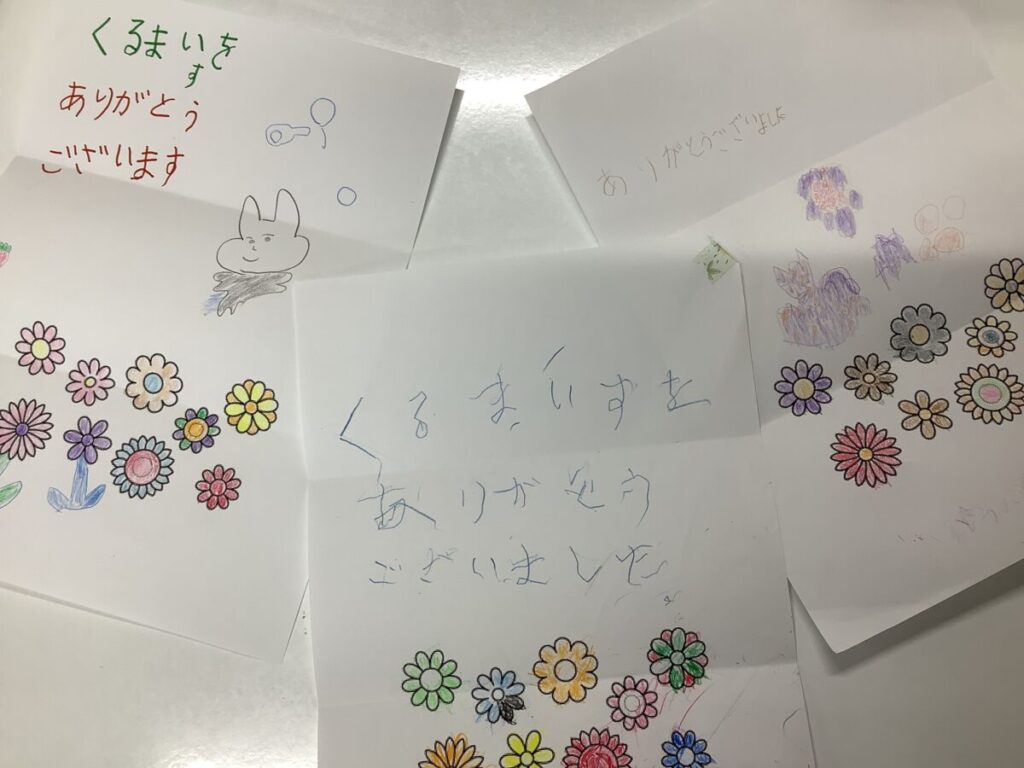 くるまいすを
ありがとう
ございます
ありがとうございました
くるまいすを
ありがとう
ございました